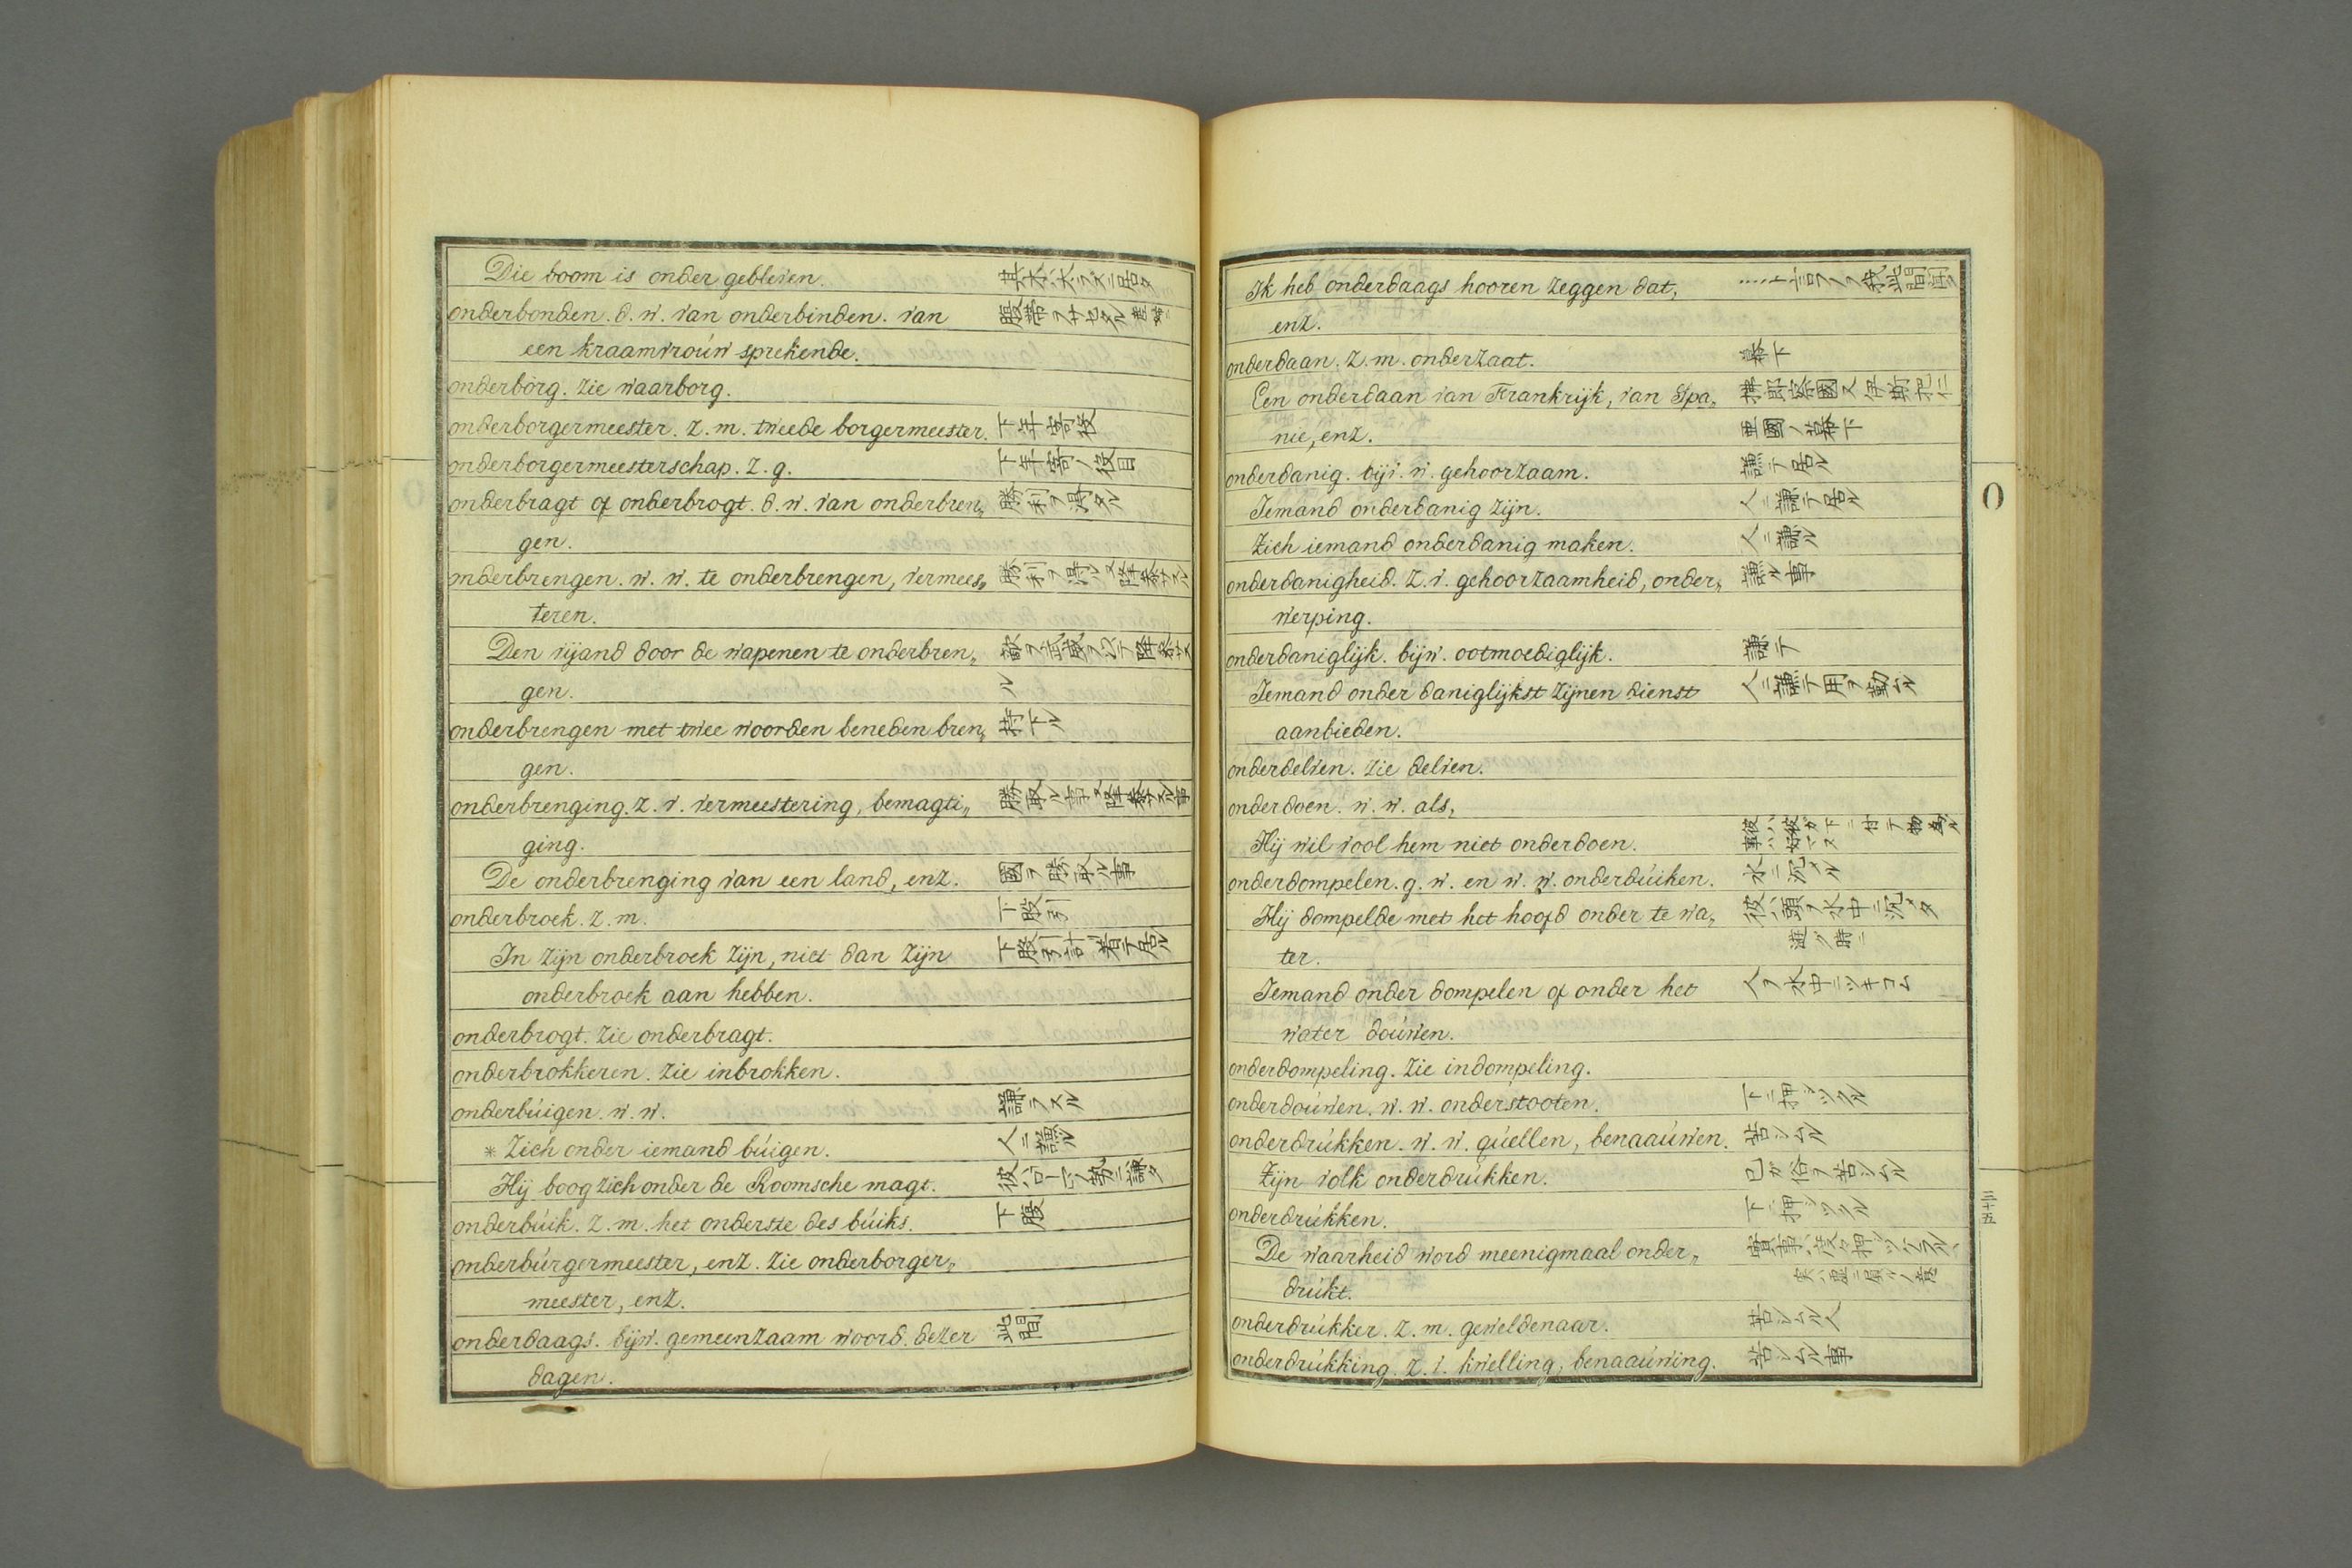 Die boom is onder gebleven. 其木ハ太ラズニ居タ
onderbonden. d. w. van onderbinden. van 腹帯ヲサセタル
een kraamvroúw sprekende.
onderbórg. zie waarborg.
onderborgermeester. z. m. tweede borgermeester. 下年寄役
onderborgermeesterschap. z. g. 下年寄ノ役目
onderbragt of onderbrogt. d. w. van onderbren„ 勝利ヲ得タル
gen.
onderbrengen. w. w. te onderbrengen, vermees„ 勝利ヲ得ル又降参サスル
teren.
Den vijand door de wapenen te onderbren„ 敵ヲ武威ヲ以テ降参サス
gen. ル
onderbrengen met twee woorden beneden bren„ 持下ル
gen.
onderbrenging. z. v. vermeestering, bemagti„ 勝取ル事又降参サスル事
ging.
De onderbrenging van een land, enz. 國ヲ勝取ル事
onderbroek. z. m. 下股引
In zijn onderbroek zijn, niet dan zijn 下股引計リ着テ居ル
onderbroek aan hebben.
onderbrogt. zie onderbragt.
onderbrokkeren. zie inbrokken.
onderbúigen. w. w. 謙ヲスル
* Zich onder iemand búigen. 人ニ謙ル
Hij boog zich onder de Roomsche magt. 彼ハローマノ勢ニ謙タ
onderbúik. z. m. het onderste des búiks. 下腹
onderbúrgermeester, enz. zie onderborger„
meester, enz.
onderdaags. bijw. gemeenzaam woord. dezer 此間
dagen.
Ik heb onderdaags hooren zeggen dat, ……ト言フヿヲ我此間聞タ
enz.
onderdaan. z. m. onderzaat. 幕下
Een onderdaan van Frankrijk, van Spa„ 拂郎察國又伊斯把仁
nie, enz. 亜國ノ幕下
onderdanig. bijv. w. gehoorzaam. 謙テ居ル
Iemand onderdanig zijn. 人ニ謙テ居ル
Zich iemand onderdanig maken. 人ニ謙ル
onderdanigheid. z. v. gehoorzaamheid, onder„ 謙ル事
werping.
onderdaniglijk. bijw. ootmoediglijk. 謙テ
Iemand onder daniglijkst zijnen dienst 人ニ謙テ用ヲ勤ムル
aanbieden.
onderdelven. zie delven.
onderdoen. w. w. als,
Hij wil vool hem niet onderdoen. 彼ハ彼ガ下ニ付テ物為ル事ハ好マヌ
onderdompelen. g. w. en w. w. onderdúiken. 水ニ沉メル
Hij dompelde met het hoofd onder te wa„ 彼ハ頭ヲ水中ニ沉メタ
ter. 遊グ時ニ
Iemand onder dompelen of onder het 人ヲ水中ニツキコム
water doúwen.
onderdompeling. zie indompeling.
onderdoúwen. w. w. onderstooten. 下ニ押シツクル
onderdrúkken. w. w. qúellen, benaaúwen. 苦シムル
Zijn volk onderdrúkken. 己ガ俗ヲ苦シムル
onderdrúkken. 下ニ押シツクル
De waarheid word meenigmaal onder„ 實事ハ度々押シツケラルヽ
drúkt. 実ハ虚ニ屈ルノ意
onderdrúkker. z. m. geweldenaar. 苦シムル人
onderdrúkking. z. v. kwelling, benaaúwing. 苦シムル事
O
三十五